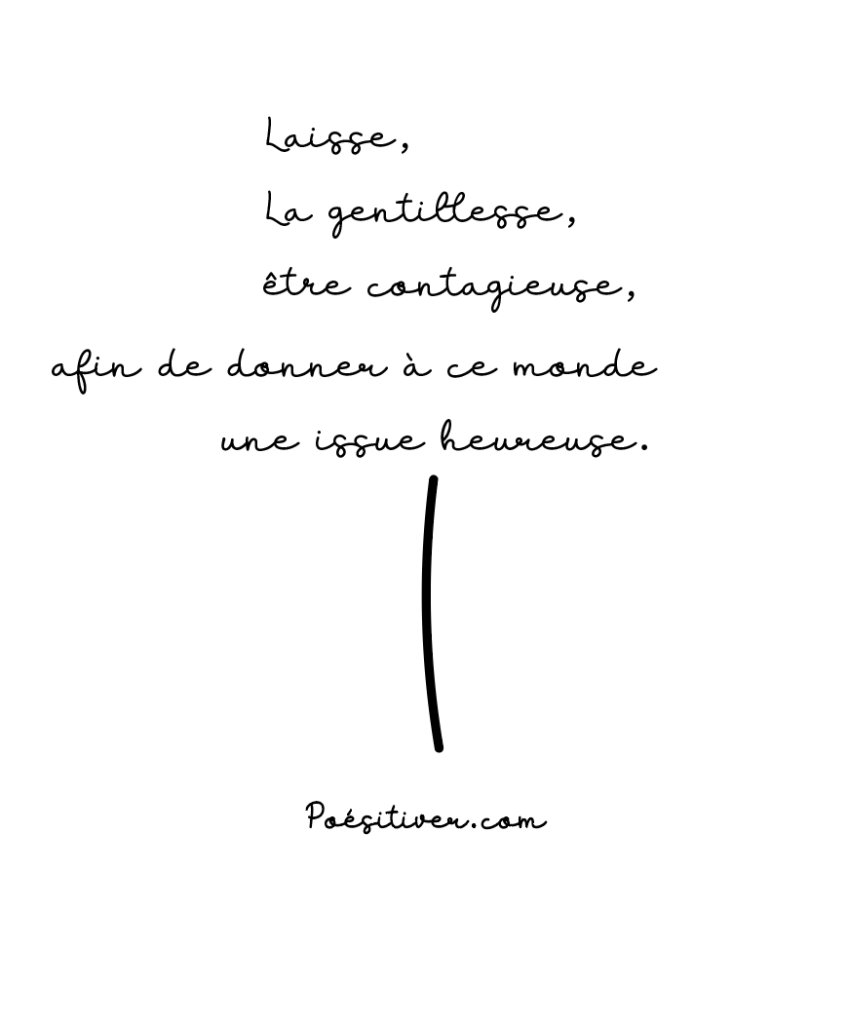 Laisse,
La gentillesse,
être contagieuse,
afin de donner à ce monde
une issue heureuse.
Poésitiver.com